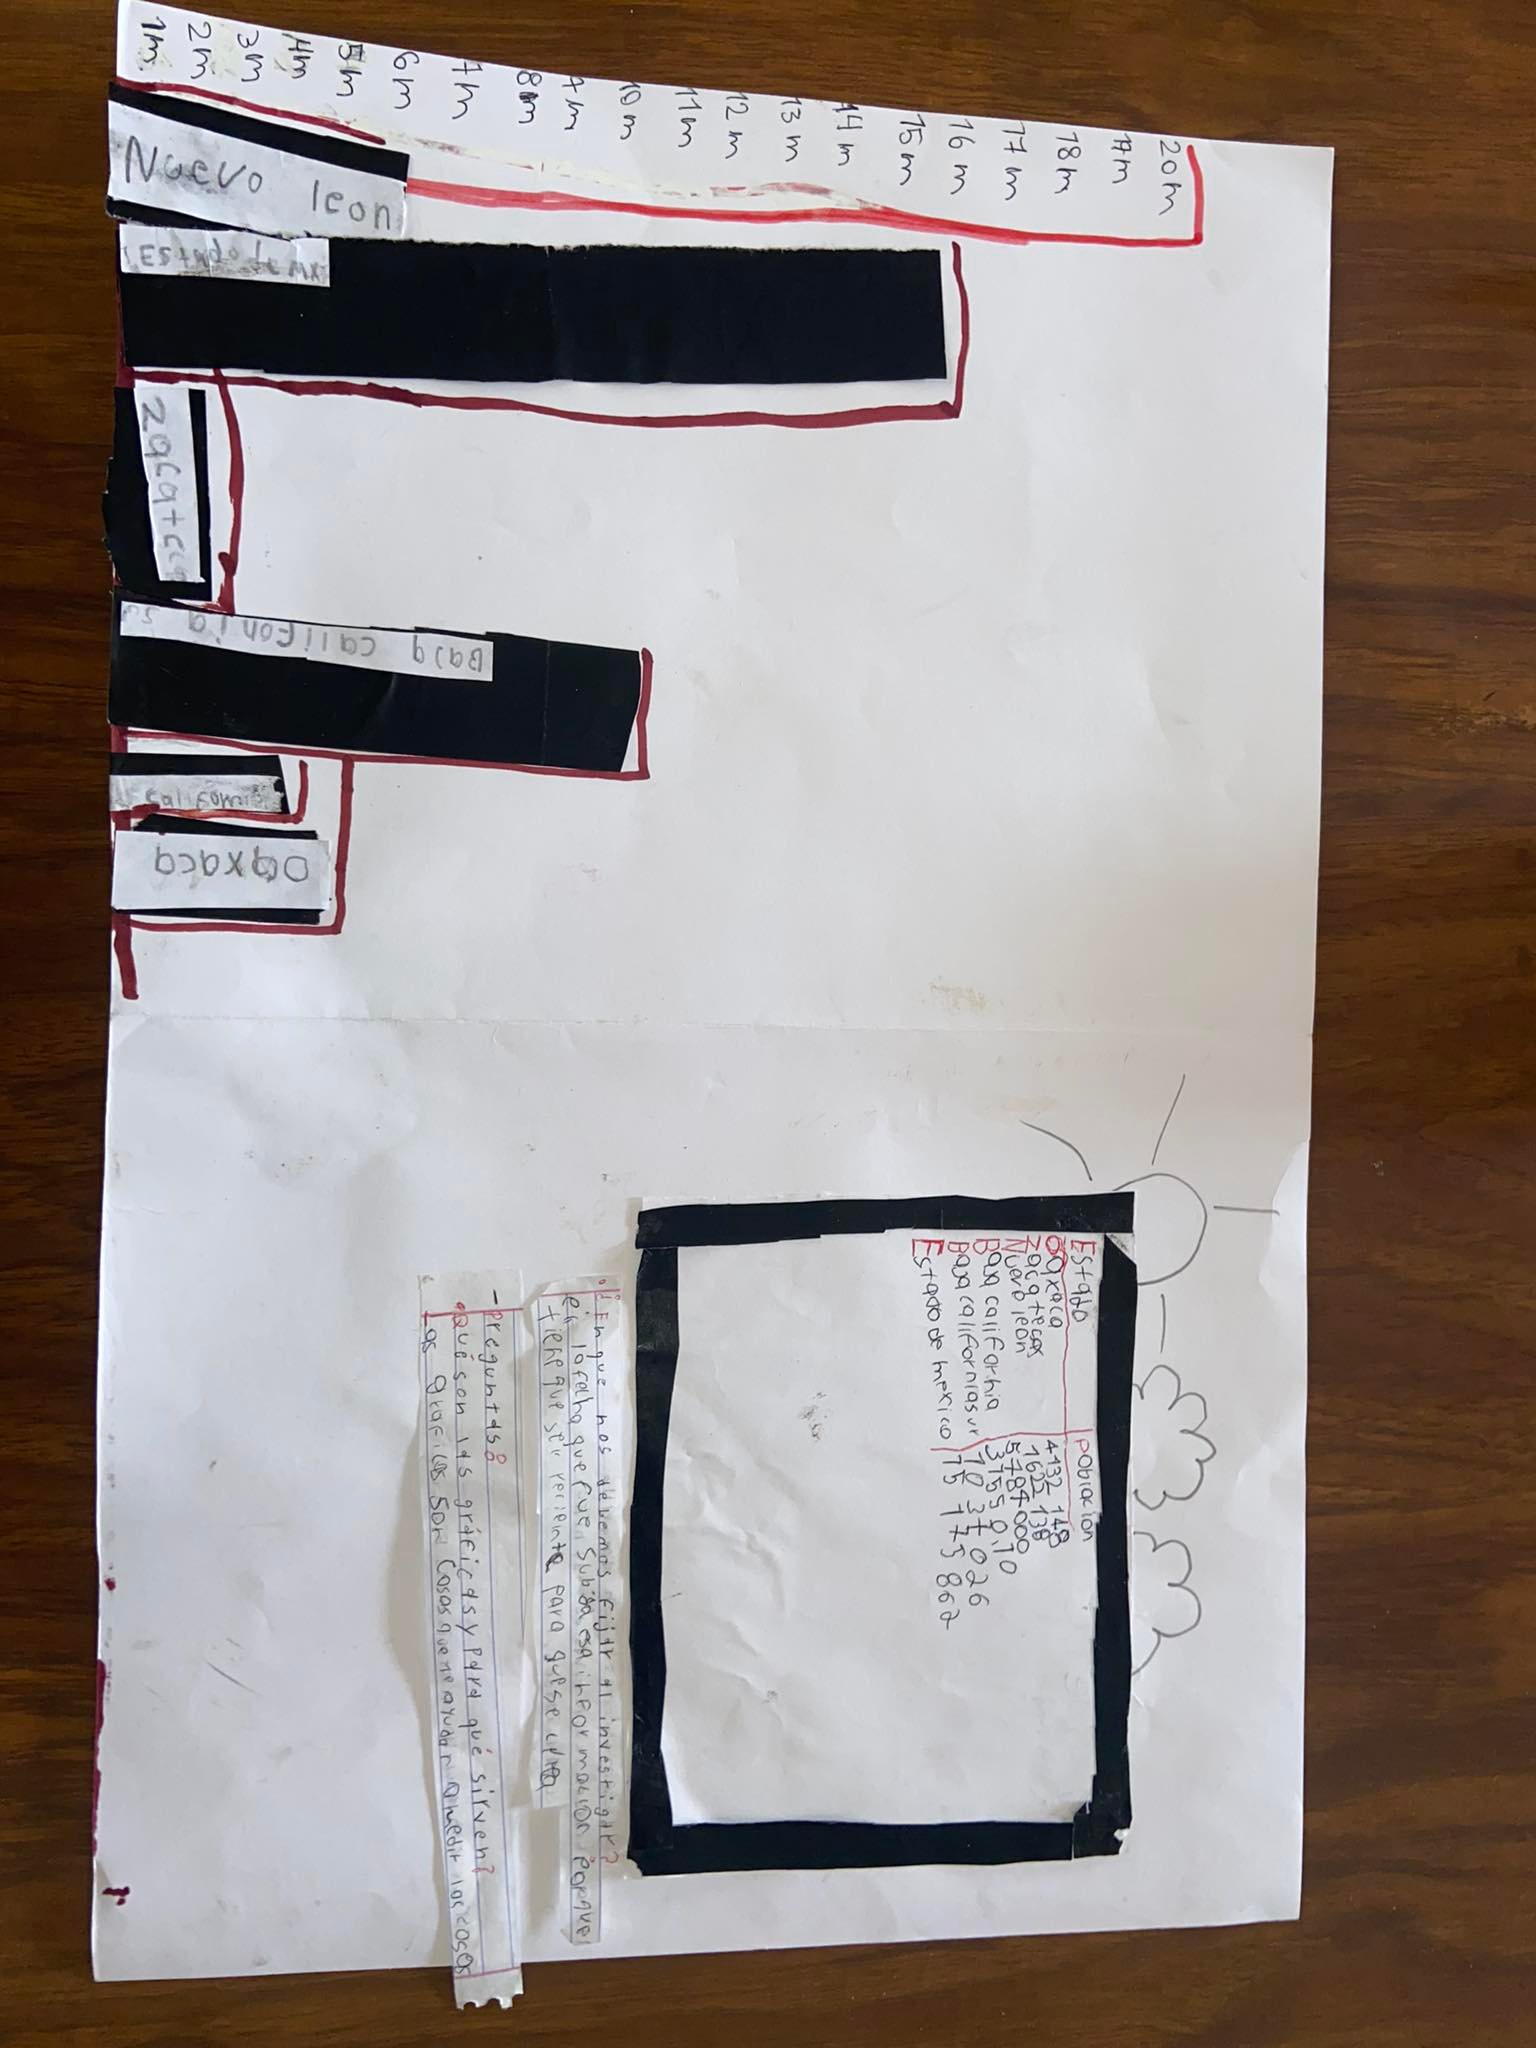 20m
19m
18m
17m
16m
15m
14m
13m
12m
11m
10m
9m
8m
7m
6m
5m
4m
3m
2m
1m.
Nuevo leon
zacatec
Baja califonia su
Oaxaca
Estado población
Oaxaca 4132 148
Zacatecas 1622 138
Nuevo leon 5784000
Baja california
Baja californiasur
Estado de mexico 15 175 862
¿En que nos debemos fijar al investigar?
en lafecha que fue subida esa informacion porque
tiene que ser reciente para quese
- preguntas:
Qué son las gráficas y para qué sirven?
Las graficas son cosas que ayudan a medir las cosas